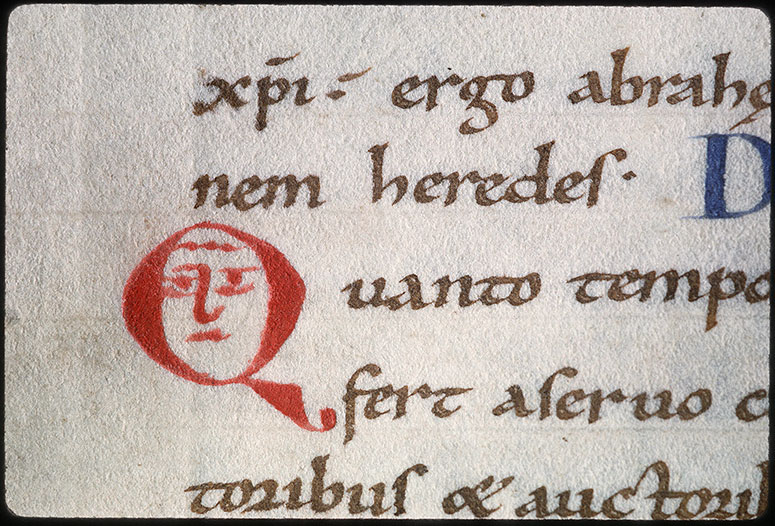 xp̄ı ergo abrahę
nem heredes. D
Quanto tempo
fert aseruo c
toribus & auctorib